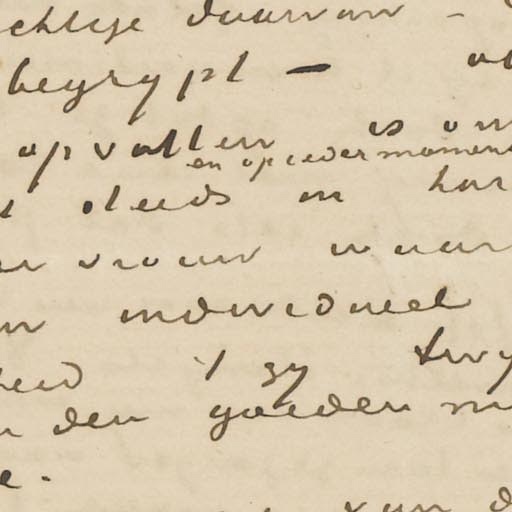 daarvan -
begrypt —
opvatten is om
en op ieder moment
steeds in har
vrouw waar
individueel
heid 't zy twy
den goeden m
e.
van d